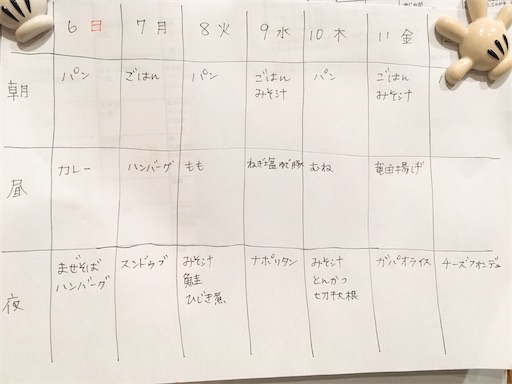 6 日 7 月 8 火 9 水 10 木 11 金
朝 パン ごはん パン ごはん パン ごはん
みそ汁 みそ汁
昼 カレー ハンバーグ もも ねぎ塩ゆで豚 むね 竜田揚げ
夜 まぜそば スンドゥブ みそ汁 ナポリタン みそ汁 ガパオライス チーズフォンデュ
ハンバーグ 鮭 とんかつ
ひじき煮 切干大根